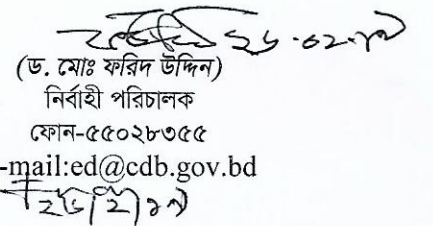 ২৬.০২.১৭
(ড. মোঃ ফরিদ উদ্দিন)
নির্বাহী পরিচালক
ফোন-৫৫০২৮৩৫৫
-mail:ed@cdb.gov.bd